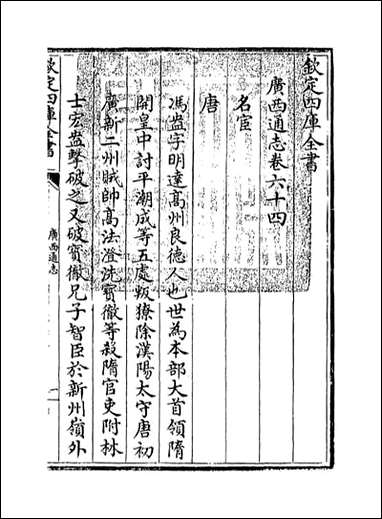 欽定四庫全書
廣西通志卷六十四
名宦
唐
馮盎字明達高州良徳人也世為本部大首領隋
開皇中討平潮成等五處叛獠除漢陽太守唐初
廣新二州賊帥高法澄洗寳徹等殺隋官吏附林
士宏盎撃破之又破寳徹兄子智臣於新州嶺外
欽定四庫全書
廣西通志
一